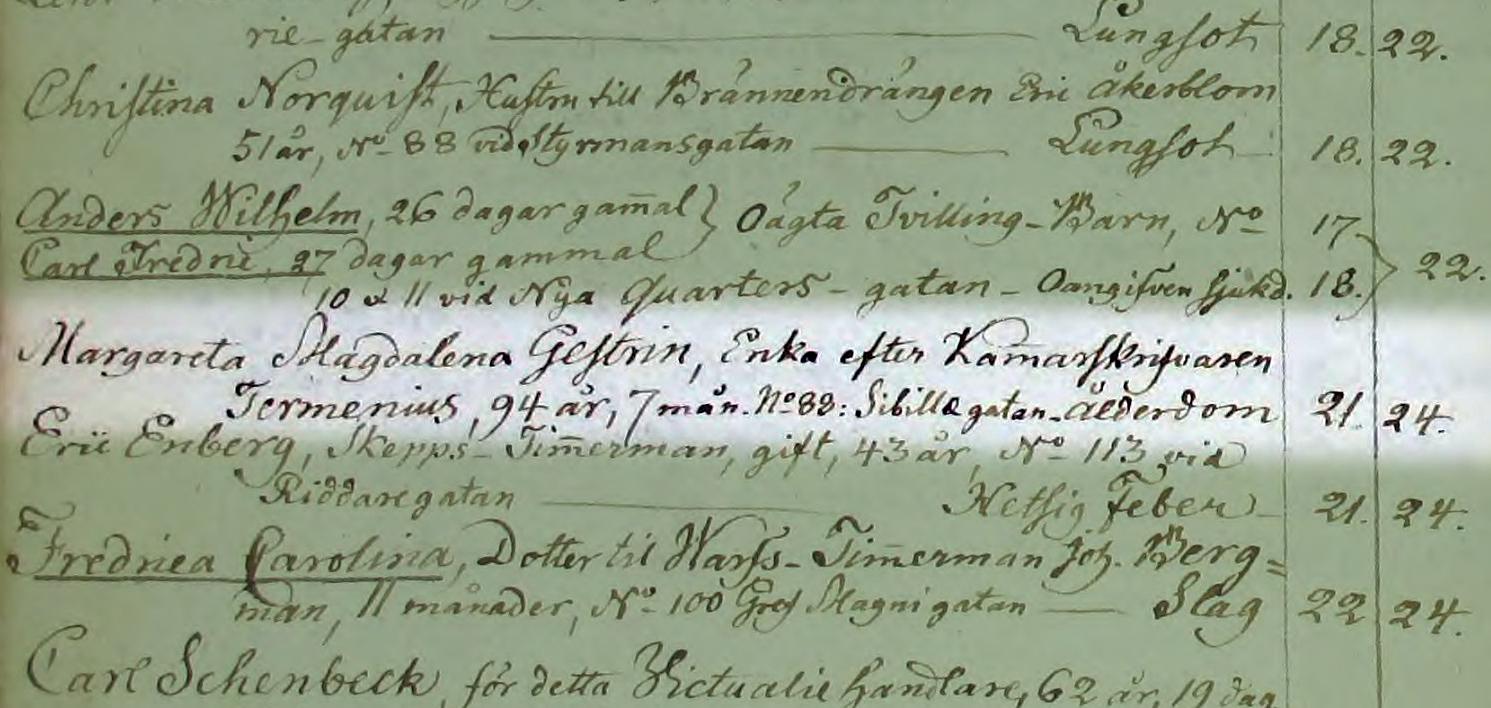 rie-gatan — Lungsot 18. 22.
Christina Norquist, Hustru till Brännendrängen Eric Åkerblom
51 år, No 88 vid Styrmansgatan — Lungsot 18. 22.
Anders Wilhelm, 26 dagar gam̄al } Oägta Tvilling-Barn, No 17.
Carl Fredric, 27 dagar gammal 22.
10 & 11 vid Nya Quarters-gatan - Oangifven sjukd. 18.
Margareta Magdalena Gestrin, Enka efter Kam̄arskrifvaren
Termenius, 94 år, 7 mån. No 88: Sibillæ gatan - ålderdom 21. 24.
Eric Enberg, Skepps-Tim̄erman, gift, 43 år, No 113 vid
Riddaregatan — Hetsig Feber 21. 24.
Fredrica Carolina, Dotter til Warfs-Tim̄erman Joh. Berg=
man, 11 månader, No 100 Gref Magni gatan — Slag 22 24.
Carl Schenbeck, för detta Victualie handlare, 62 år, 19 dag